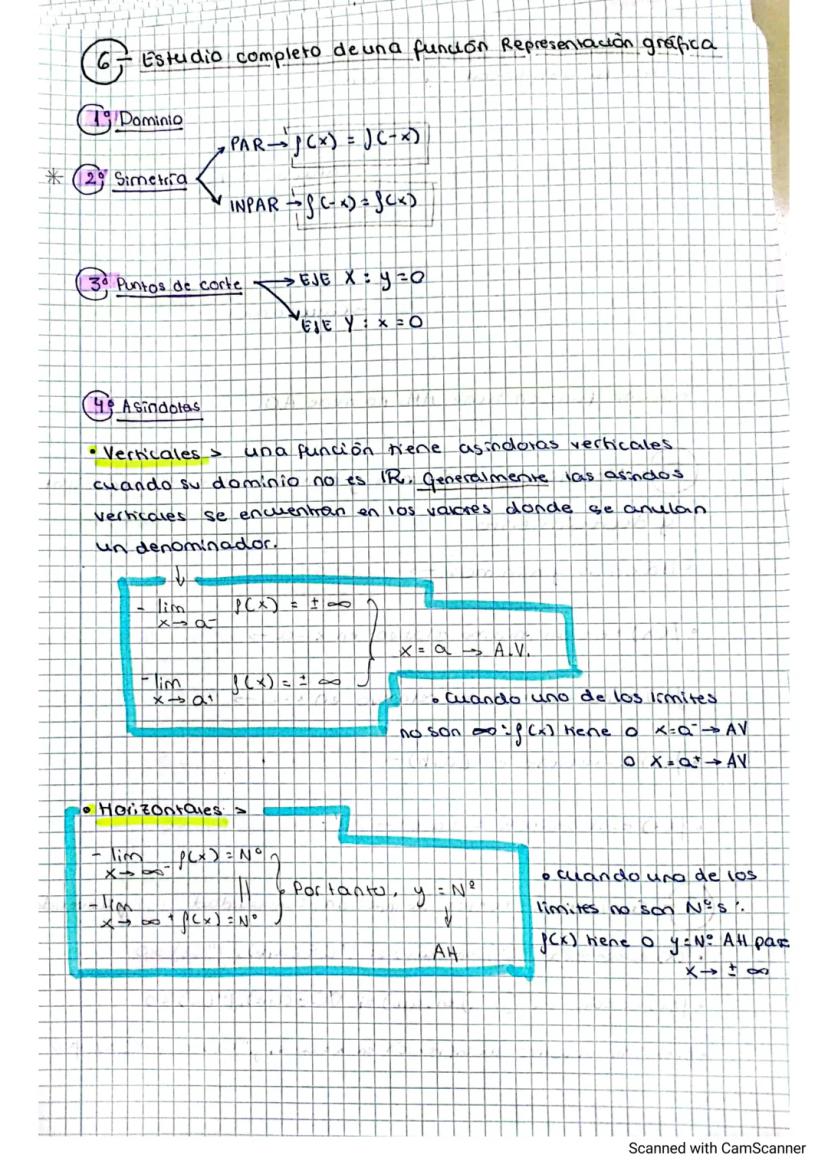 6- Estudio completo de una función Representación gráfica
1º Dominio
PAR → f(x) = f(-x)
* 2º Simetría
INPAR → f(-x) = f(x)
3º Puntos de corte → EJE X : y = 0
EJE Y : x = 0
4º Asíndotas
• Verticales > una función tiene asíndotas verticales
cuando su dominio no es IR. Generalmente las asíndos
verticales se encuentran en los valores donde se anulan
un denominador.
- lim f(x) = ± ∞
x → a-
x = a → A.V.
- lim f(x) = ± ∞
x → a+
• Cuando uno de los límites
no son ∞ : f(x) tiene o x=a⁻ → AV
o x=a⁺ → AV
• Horizontales >
- lim f(x) = Nº
x → ∞-
|| Por tanto, y = Nº
- lim
x → ∞ + f(x) = Nº
↓
AH
• cuando uno de los
límites no son Nºs :
f(x) tiene o y=Nº AH para
x → ± ∞
Scanned with CamScanner